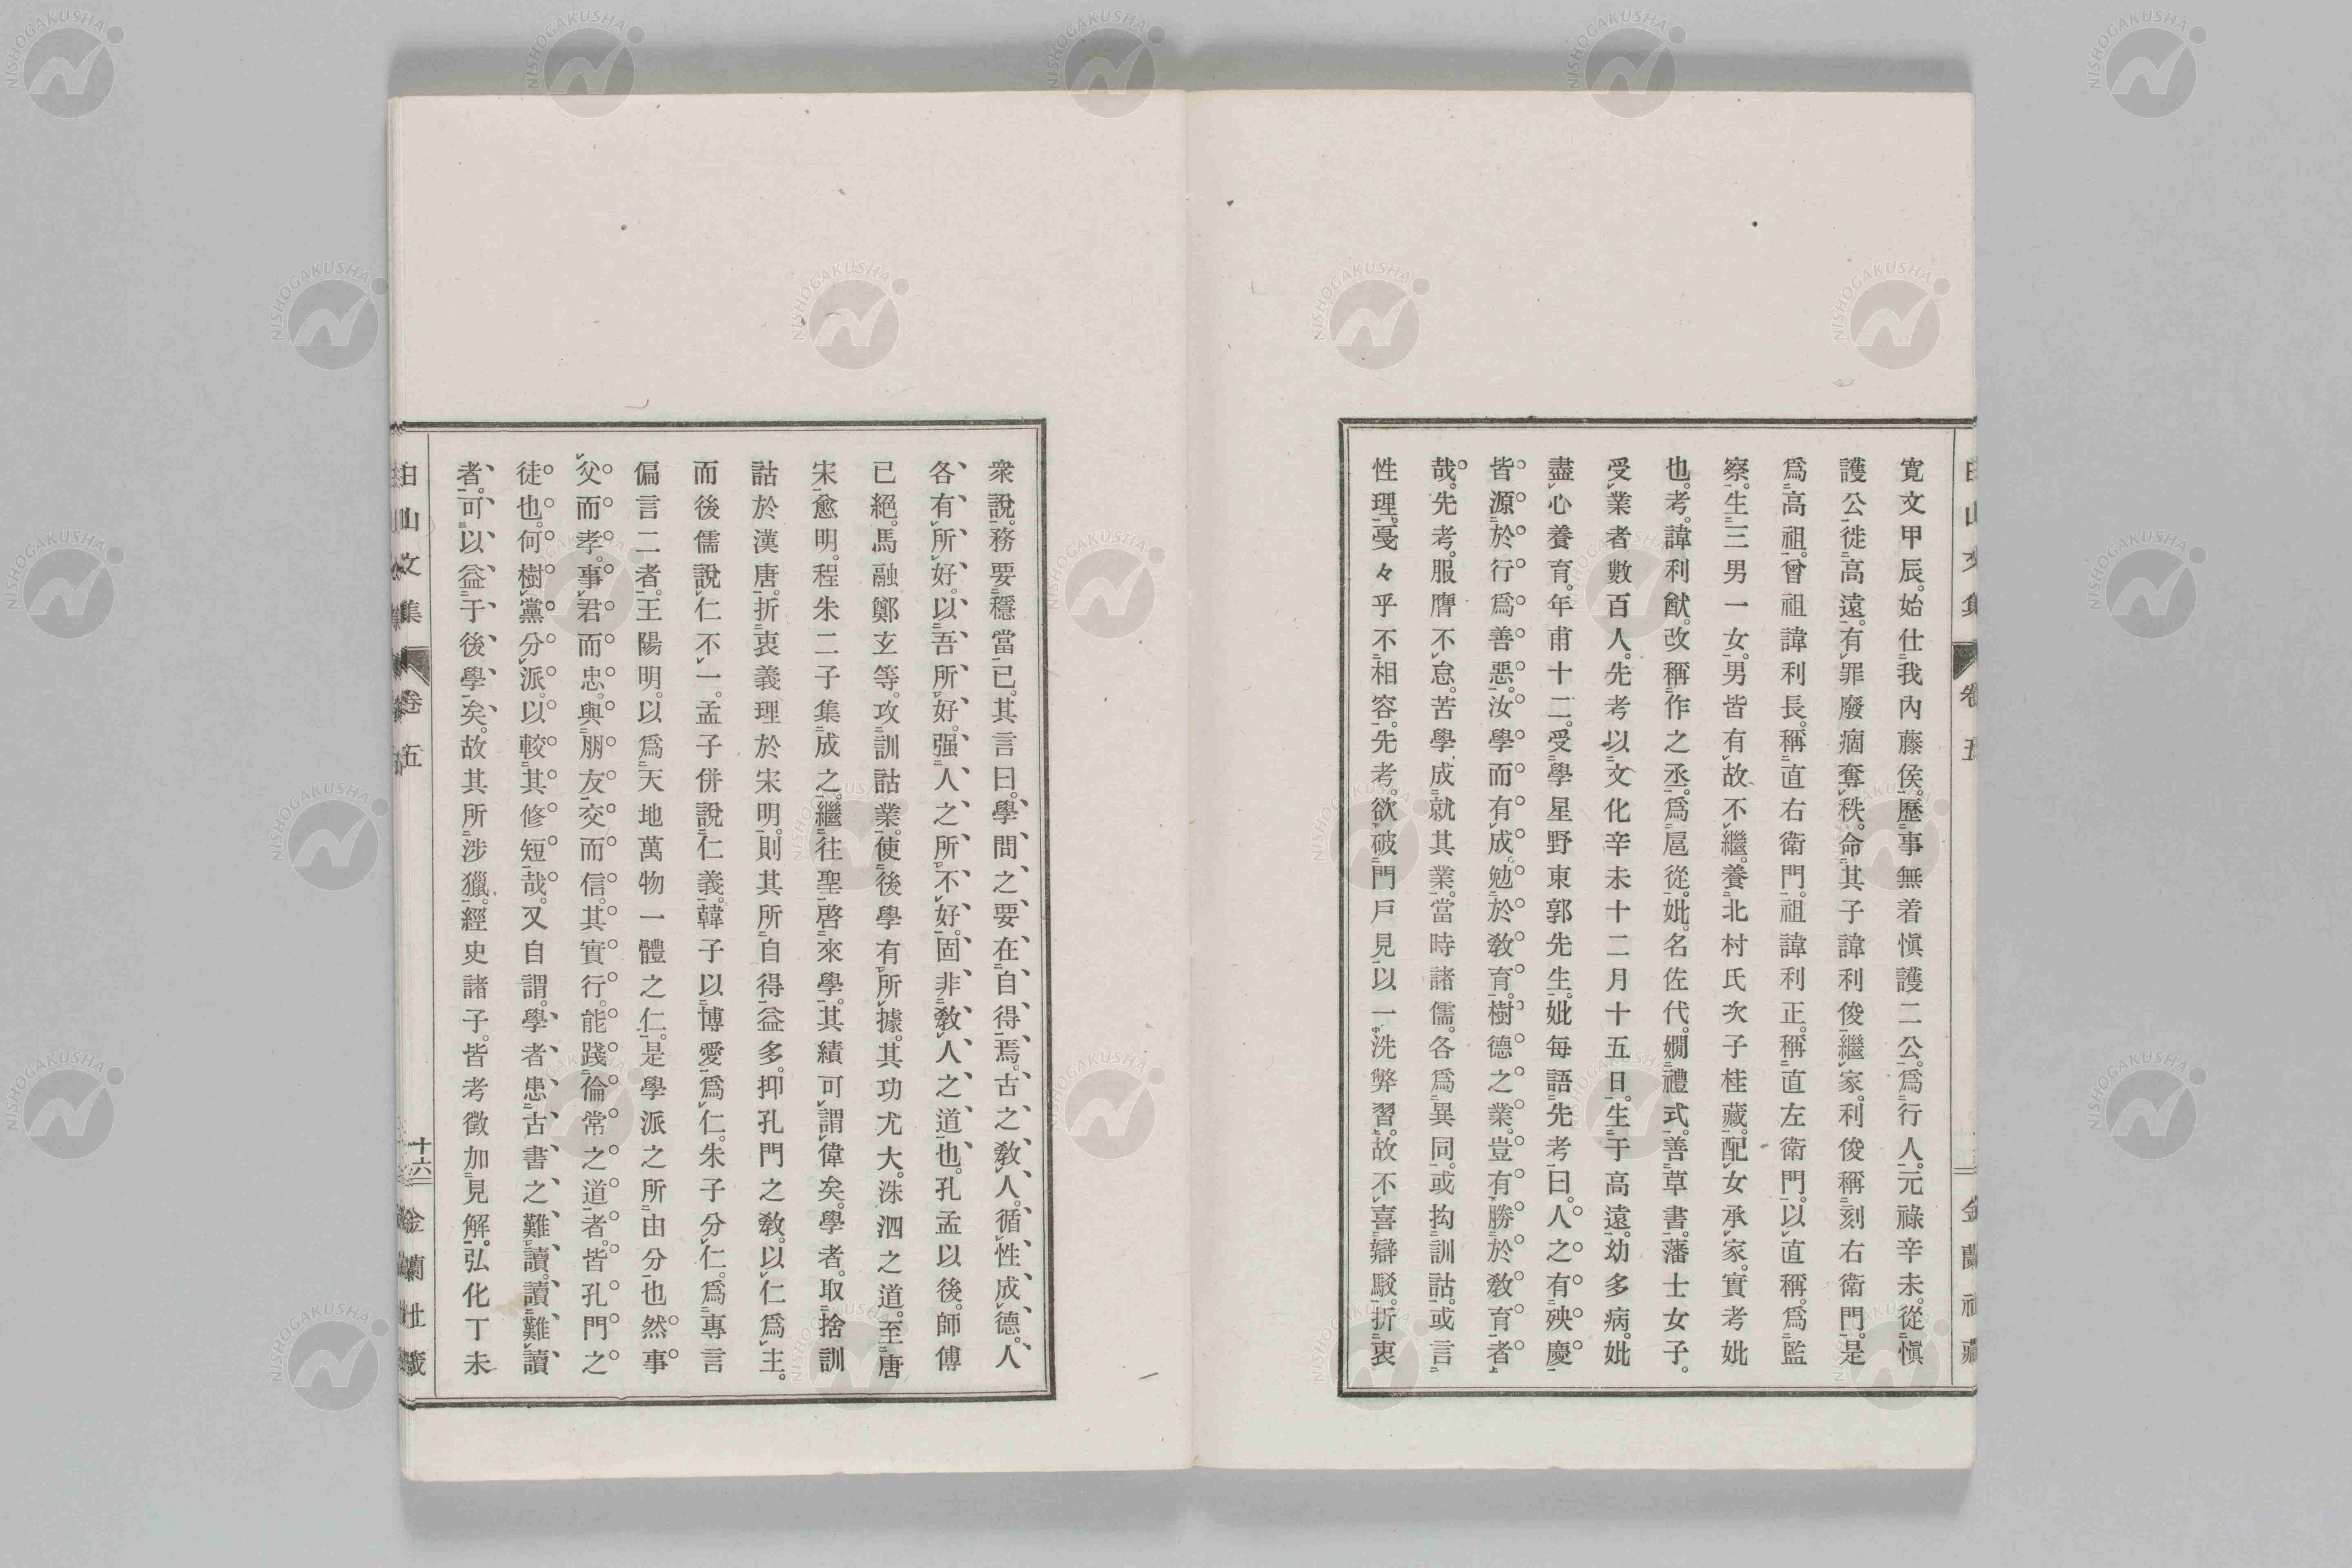 寛文甲辰。始仕我內藤侯。歷事無着愼護二公。爲行人。元祿辛未。從愼
護公。徙高遠。有罪廢痼奪秩。命其子諱利俊繼家。利俊稱刻右衛門。是
爲高祖。曾祖諱利長。稱直右衛門。祖諱利正。稱直左衛門。以直稱。爲監
察。生三男一女。男皆有故不繼。養北村氏次子桂藏。配女承家。實考妣
也。考。諱利猷。改稱作之丞。爲扈從。妣。名佐代。嫺禮式。善草書。藩士女子。
受業者數百人。先考以文化辛未十二月十五日。生于高遠。幼多病。妣
盡心養育。年甫十二。受學星野東郭先生。妣每語先考曰。人之有殃慶。
皆源於行爲善惡。汝學而有成。勉於敎育。樹德之業。豈有勝於敎育者
哉。先考。服膺不怠。苦學成就其業。當時諸儒。各爲異同。或拘訓詁。或言
性理。戛々乎不相容。先考。欲破門戶見以一洗弊習。故不喜辯駁。折衷
衆說。務要穩當已。其言曰。學問之要在自得焉。古之敎人。循性成德。人
各有所好。以吾所好。强人之所不好。固非敎人之道也。孔孟以後。師傅
已絕。馬融鄭玄等。攻訓詁業。使後學有所據。其功尤大。洙泗之道。至唐
宋愈明。程朱二子集成之。繼往聖啓來學。其績可謂偉矣。學者。取捨訓
詁於漢唐。折衷義理於宋明。則其所自得益多。抑孔門之敎。以仁爲主。
而後儒說仁不一。孟子併說仁義。韓子以博愛爲仁。朱子分仁。爲專言
偏言二者。王陽明。以爲天地萬物一體之仁。是學派之所由分也然事
父而孝。事君而忠。與朋友交而信。其實行。能踐倫常之道者。皆孔門之
徒也。何樹黨分派。以較其修短哉。又自謂。學者患古書之難讀。讀難讀
者。可以益于後學矣。故其所涉獵。經史諸子。皆考徵加見解。弘化丁未
由山文集 卷五 十六 金蘭社藏